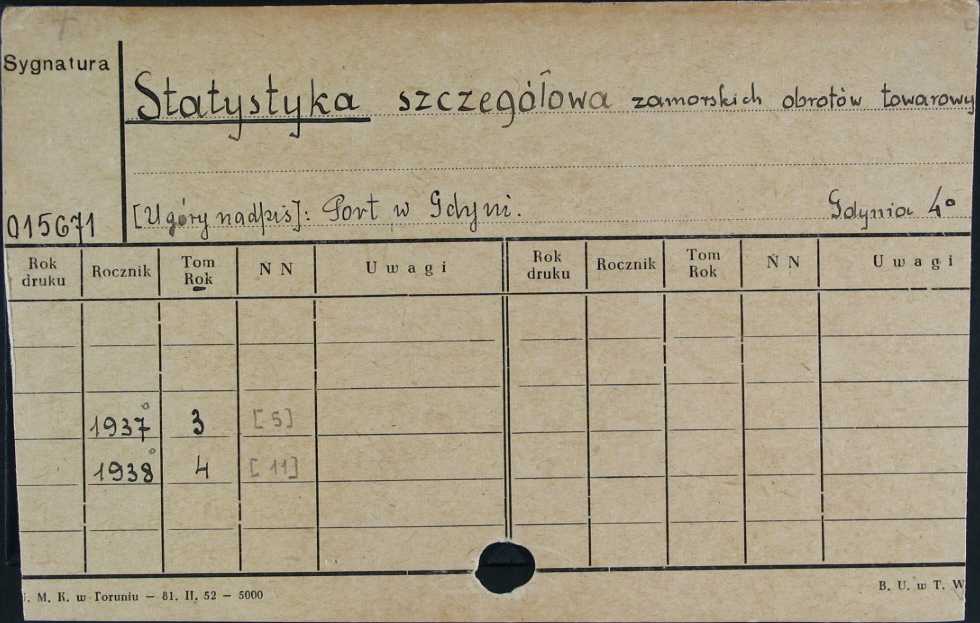 Sygnatura
Statystyka szczegółowa zamorskich obrotów towarowy
015671
[U góry nadpis]: Port w Gdyni. Gdynia 4°
Rok druku Rocznik Tom Rok N N Uwagi Rok druku Rocznik Tom Rok N N Uwagi
1937° 3 [5]
1938° 4 [11]
. M. K. w Toruniu – 81. II. 52 – 5000 B. U. w T. W